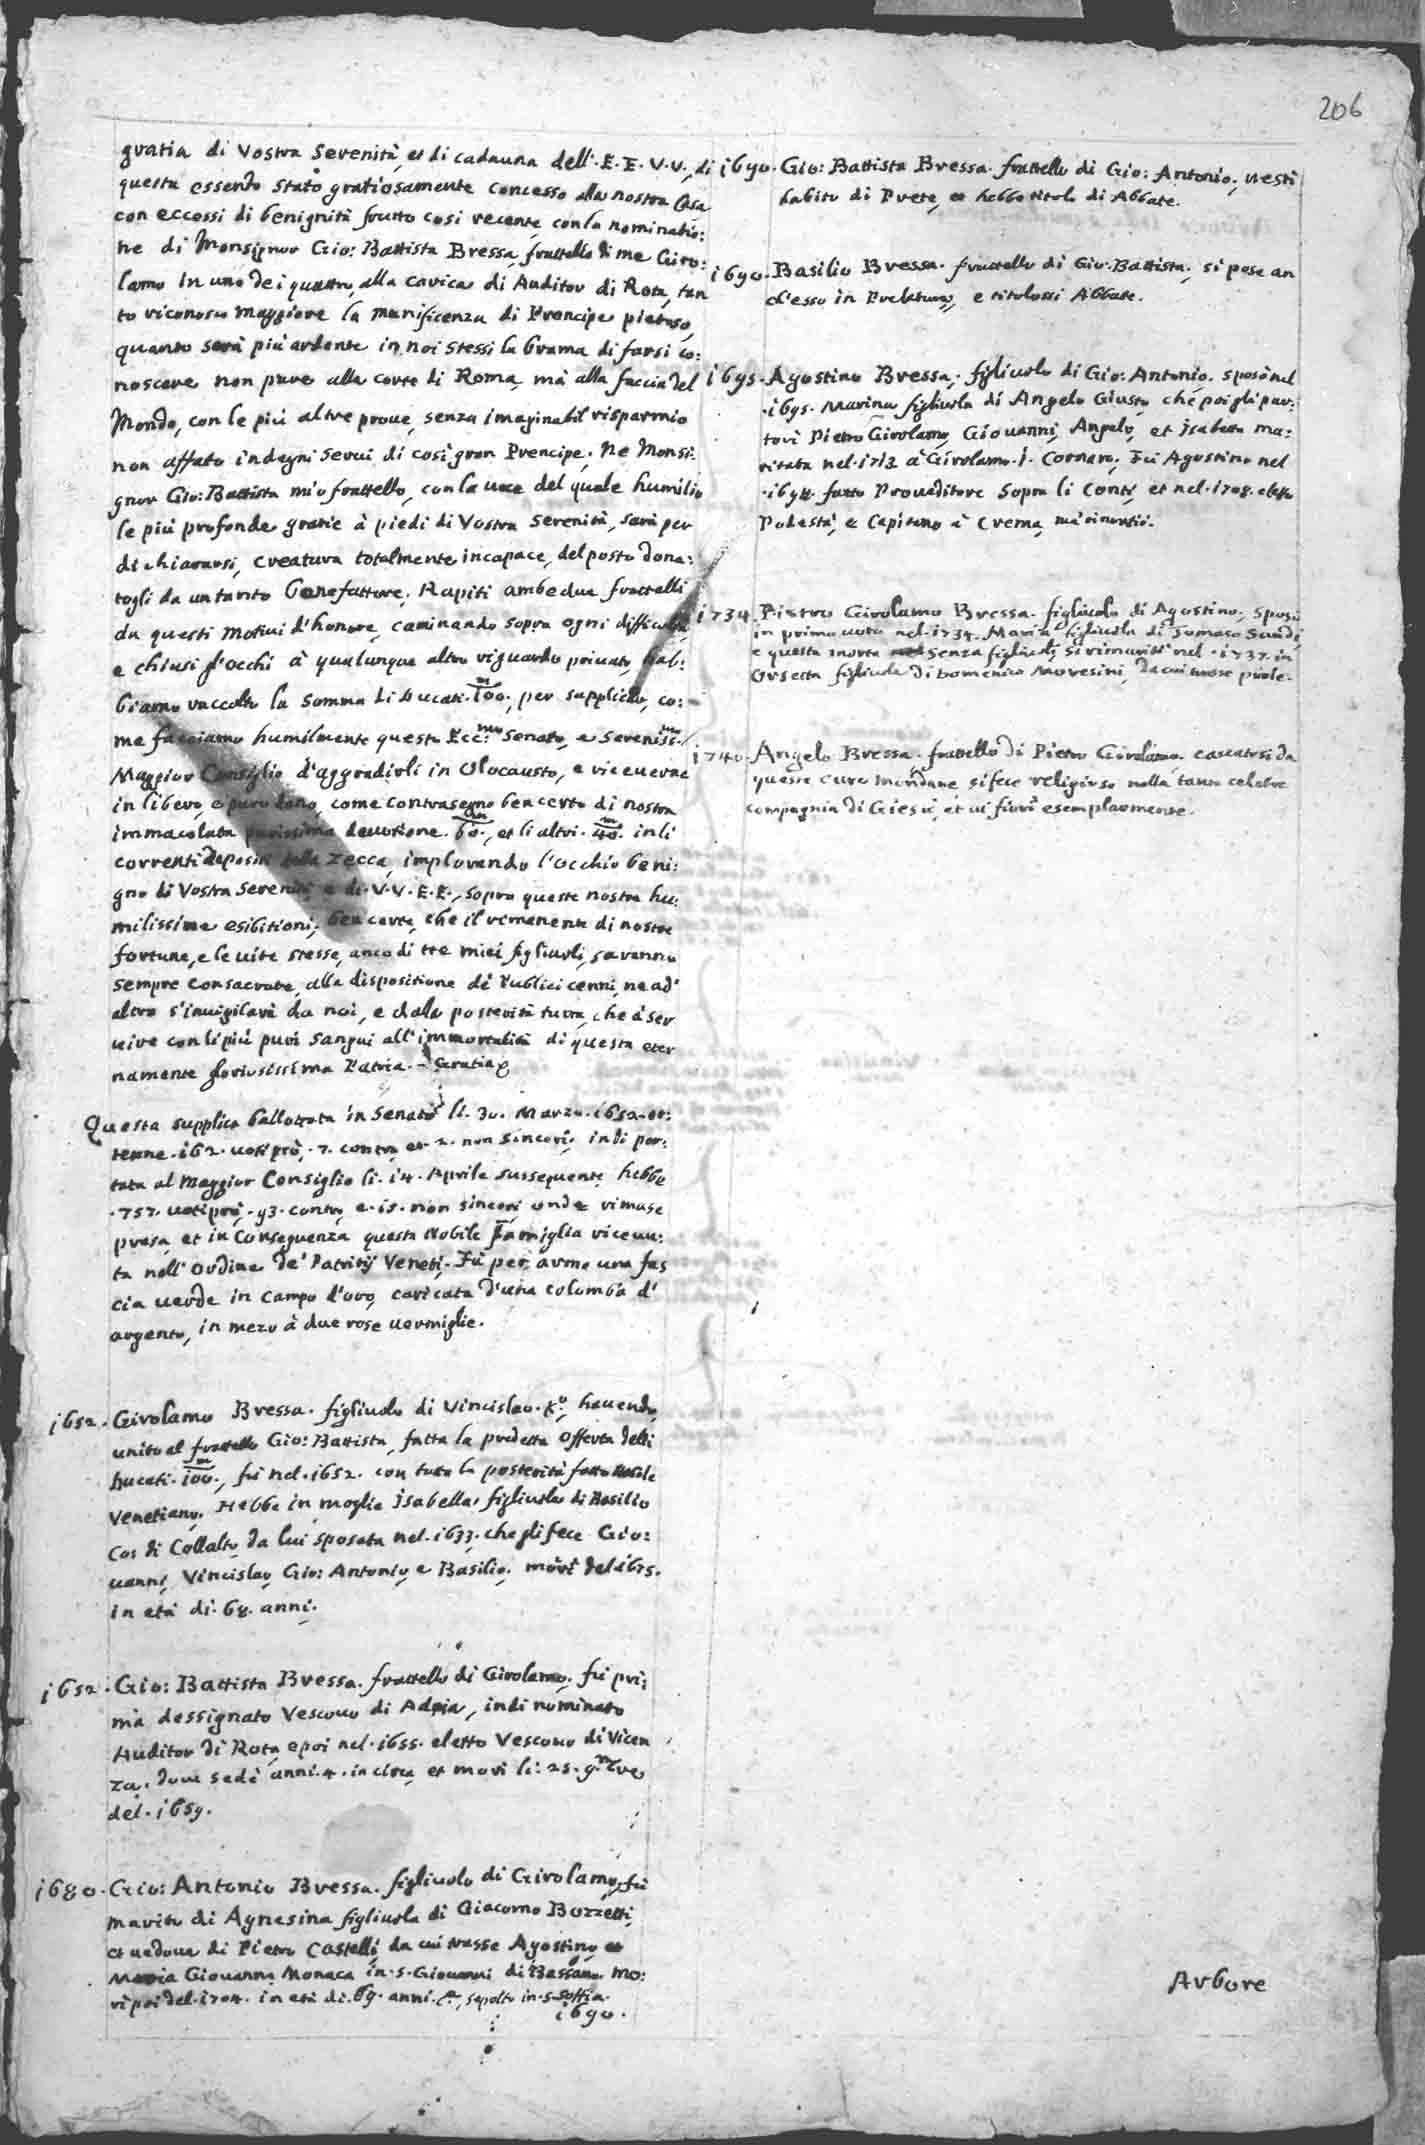 206
gratia di Vostra Serenità, et di cadauna dell'.E.E.V.V., di
questa essendo stato gratiosamente concesso alla nostra Casa
con eccessi di benignità frutto così recente, con la nominatio:
ne di Monsignor Gio: Battista Bressa, frattello di me Giro:
lamo in uno dei quattro, alla carica di Auditor di Rota, tan
to riconosco maggiore la munificenza di Prencipe pietoso,
quanto serà più ardente in noi stessi la brama di farsi co:
noscere non pure alla corte di Roma, mà alla faccia del
Mondo, con le più altre proue, senza imaginabil risparmio
non affato indegni serui di così gran Prencipe. Ne Monsi:
gnor Gio: Battista mio frattello, con la uoce del quale humilio
le più profonde gratie à piedi di Vostra Serenità, sarà per
dichiararsi, creatura totalmente incapace, del posto dona:
togli da un tanto benefattore. Rapiti ambedue frattelli
da questi motiui d'honore, caminando sopra ogni difficoltà,
e chiusi gl'occhi à qualunque altro riguardo priuato, hab:
biamo raccolto la somma di Ducati .100.m, per supplicar, co:
me facciamo humilmente questo Ecc:mo Senato, e Sereniss:mo
Maggior Consiglio d'aggradirli in Olocausto, e riceuerne
in libero, e puro dono, come contrasegno ben certo di nostra
immacolata purissima deuotione .60.m, et li altri .40.m in li
correnti depositi della Zecca, implorando l'occhio beni:
gno di Vostra Serenità e di .V.V.E.E., sopra queste nostre hu:
milissime esibitioni, ben certe, che il rimanente di nostre
fortune, e le uite stesse, anco di tre miei figliuoli, saranno
sempre consacrate, alla dispositione de' Publici cenni, ne ad'
altro s'inuigilarà da noi, e dala posterità tutta, che à ser
uire con li più puri sangui all'immortalità di questa eter
namente gloriosissima Patria. - Gratia
Questa supplica ballottata in Senato li. 30. Marzo .1652. ot:
tenne .162. uoti prò, .7. contro, et .2. non sinceri, indi por:
tata al Maggior Consiglio li. 14. Aprile sussequente hebbe
.757. uoti prò, .93. contro, e .15. non sinceri onde rimase
presa, et in conseguenza questa Nobile Famiglia riceuu:
ta nell'ordine de' Patritij Veneti. Fù per arme una fas
cia uerde in campo d'oro, caricata d'una colomba d'
argento, in mezo à due rose uermiglie.
1652. Girolamo Bressa. figliuolo di Vincislao K.r, hauendo,
unito al frattello Gio: Battista, fatta la predetta offerta delli
Ducati .100.m, fù nel .1652. con tutta la posterità fatto Nobile
Venetiano. Hebbe in moglie Isabella, figliuola di Basilio
Co: di Collalto, da lui sposata nel .1633. che gli fece Gio:
uanni, Vincislao, Gio: Antonio, e Basilio. morì del 1675.
in età di .68. anni.
1652. Gio: Battista Bressa. frattello di Girolamo, fù pri:
ma dessignato Vescouo di Adria, indi nominato
Auditor di Rota, e poi nel .1655. eletto Vescouo di Vicen
za. doue sedè anni .4. in circa, et morì li. 25. 9.mbre
del .1659.
1680. Gio: Antonio Bressa. figliuolo di Girolamo, fù
marito di Agnesina figliuola di Giacomo Bozzetti,
et uedoua di Pietro Castelli, da cui trasse Agostino, et
Maria Giouanna Monaca in .S. Giouanni di Bassano. mo:
rì poi del .1704. in età di .69. anni. sepolto in .S. Soffia.
1690.
1690. Gio: Battista Bressa. frattello di Gio: Antonio, uestì
habito di Prete, et hebbe titolo di Abbate.
1690. Basilio Bressa. frattello di Gio: Battista, si pose an
ch'esso in Prelatura, e titolossi Abbate.
1695. Agostino Bressa. figliuolo di Gio: Antonio. sposò nel
.1695. Marina figliuola di Angelo Giusto, che poi gli par:
torì Pietro Girolamo, Giouanni, Angelo, et Isabetta ma:
ritata nel .1713. à Girolamo .I. Cornaro. Fù Agostino nel
.1698. fatto Proueditore sopra li Conti, et nel .1708. eletto
Podestà, e Capitano à Crema, mà rinontiò.
1734. Pietro Girolamo Bressa. figliuolo di Agostino, sposò
in primo uoto nel .1734. Maria figliuola di Tomaso Sandi,
e questa morta senza figliuoli, si rimaritò nel .1737. in
Orsetta figliuola di Domenico Moresini, da cui trasse prole.
1740. Angelo Bressa. frattello di Pietro Girolamo, scaricatosi da
queste cure mondane si fece religioso nella tanto celebre
compagnia di Giesù, et ui fiorì esemplarmente.
Arbore